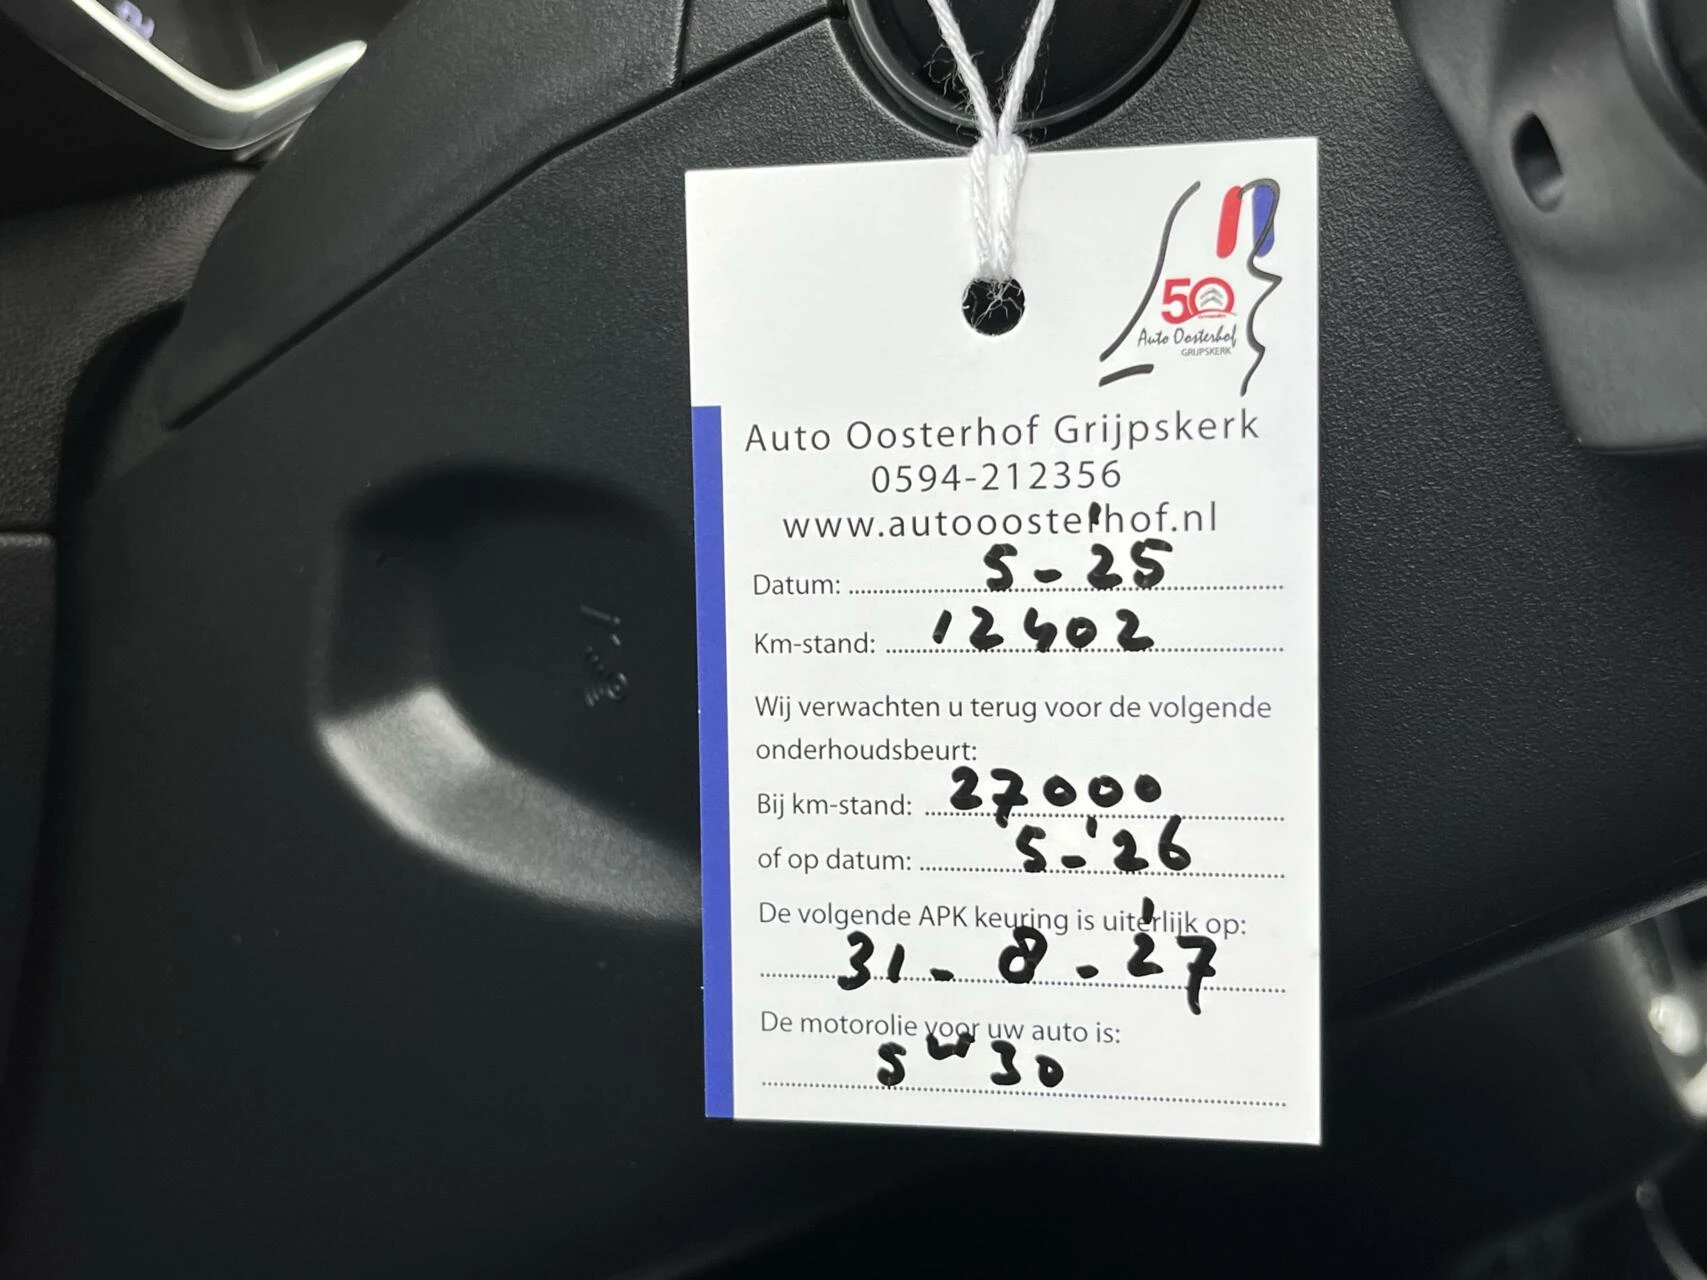 50
Auto Oosterhof
GRIJPSKERK
Auto Oosterhof Grijpskerk
0594-212356
www.autooosterhof.nl
Datum: 5 - 25
Km-stand: 12402
Wij verwachten u terug voor de volgende
onderhoudsbeurt:
Bij km-stand: 27000
of op datum: 5 - '26
De volgende APK keuring is uiterlijk op:
31 - 8 - '27
De motorolie voor uw auto is:
5 w 30